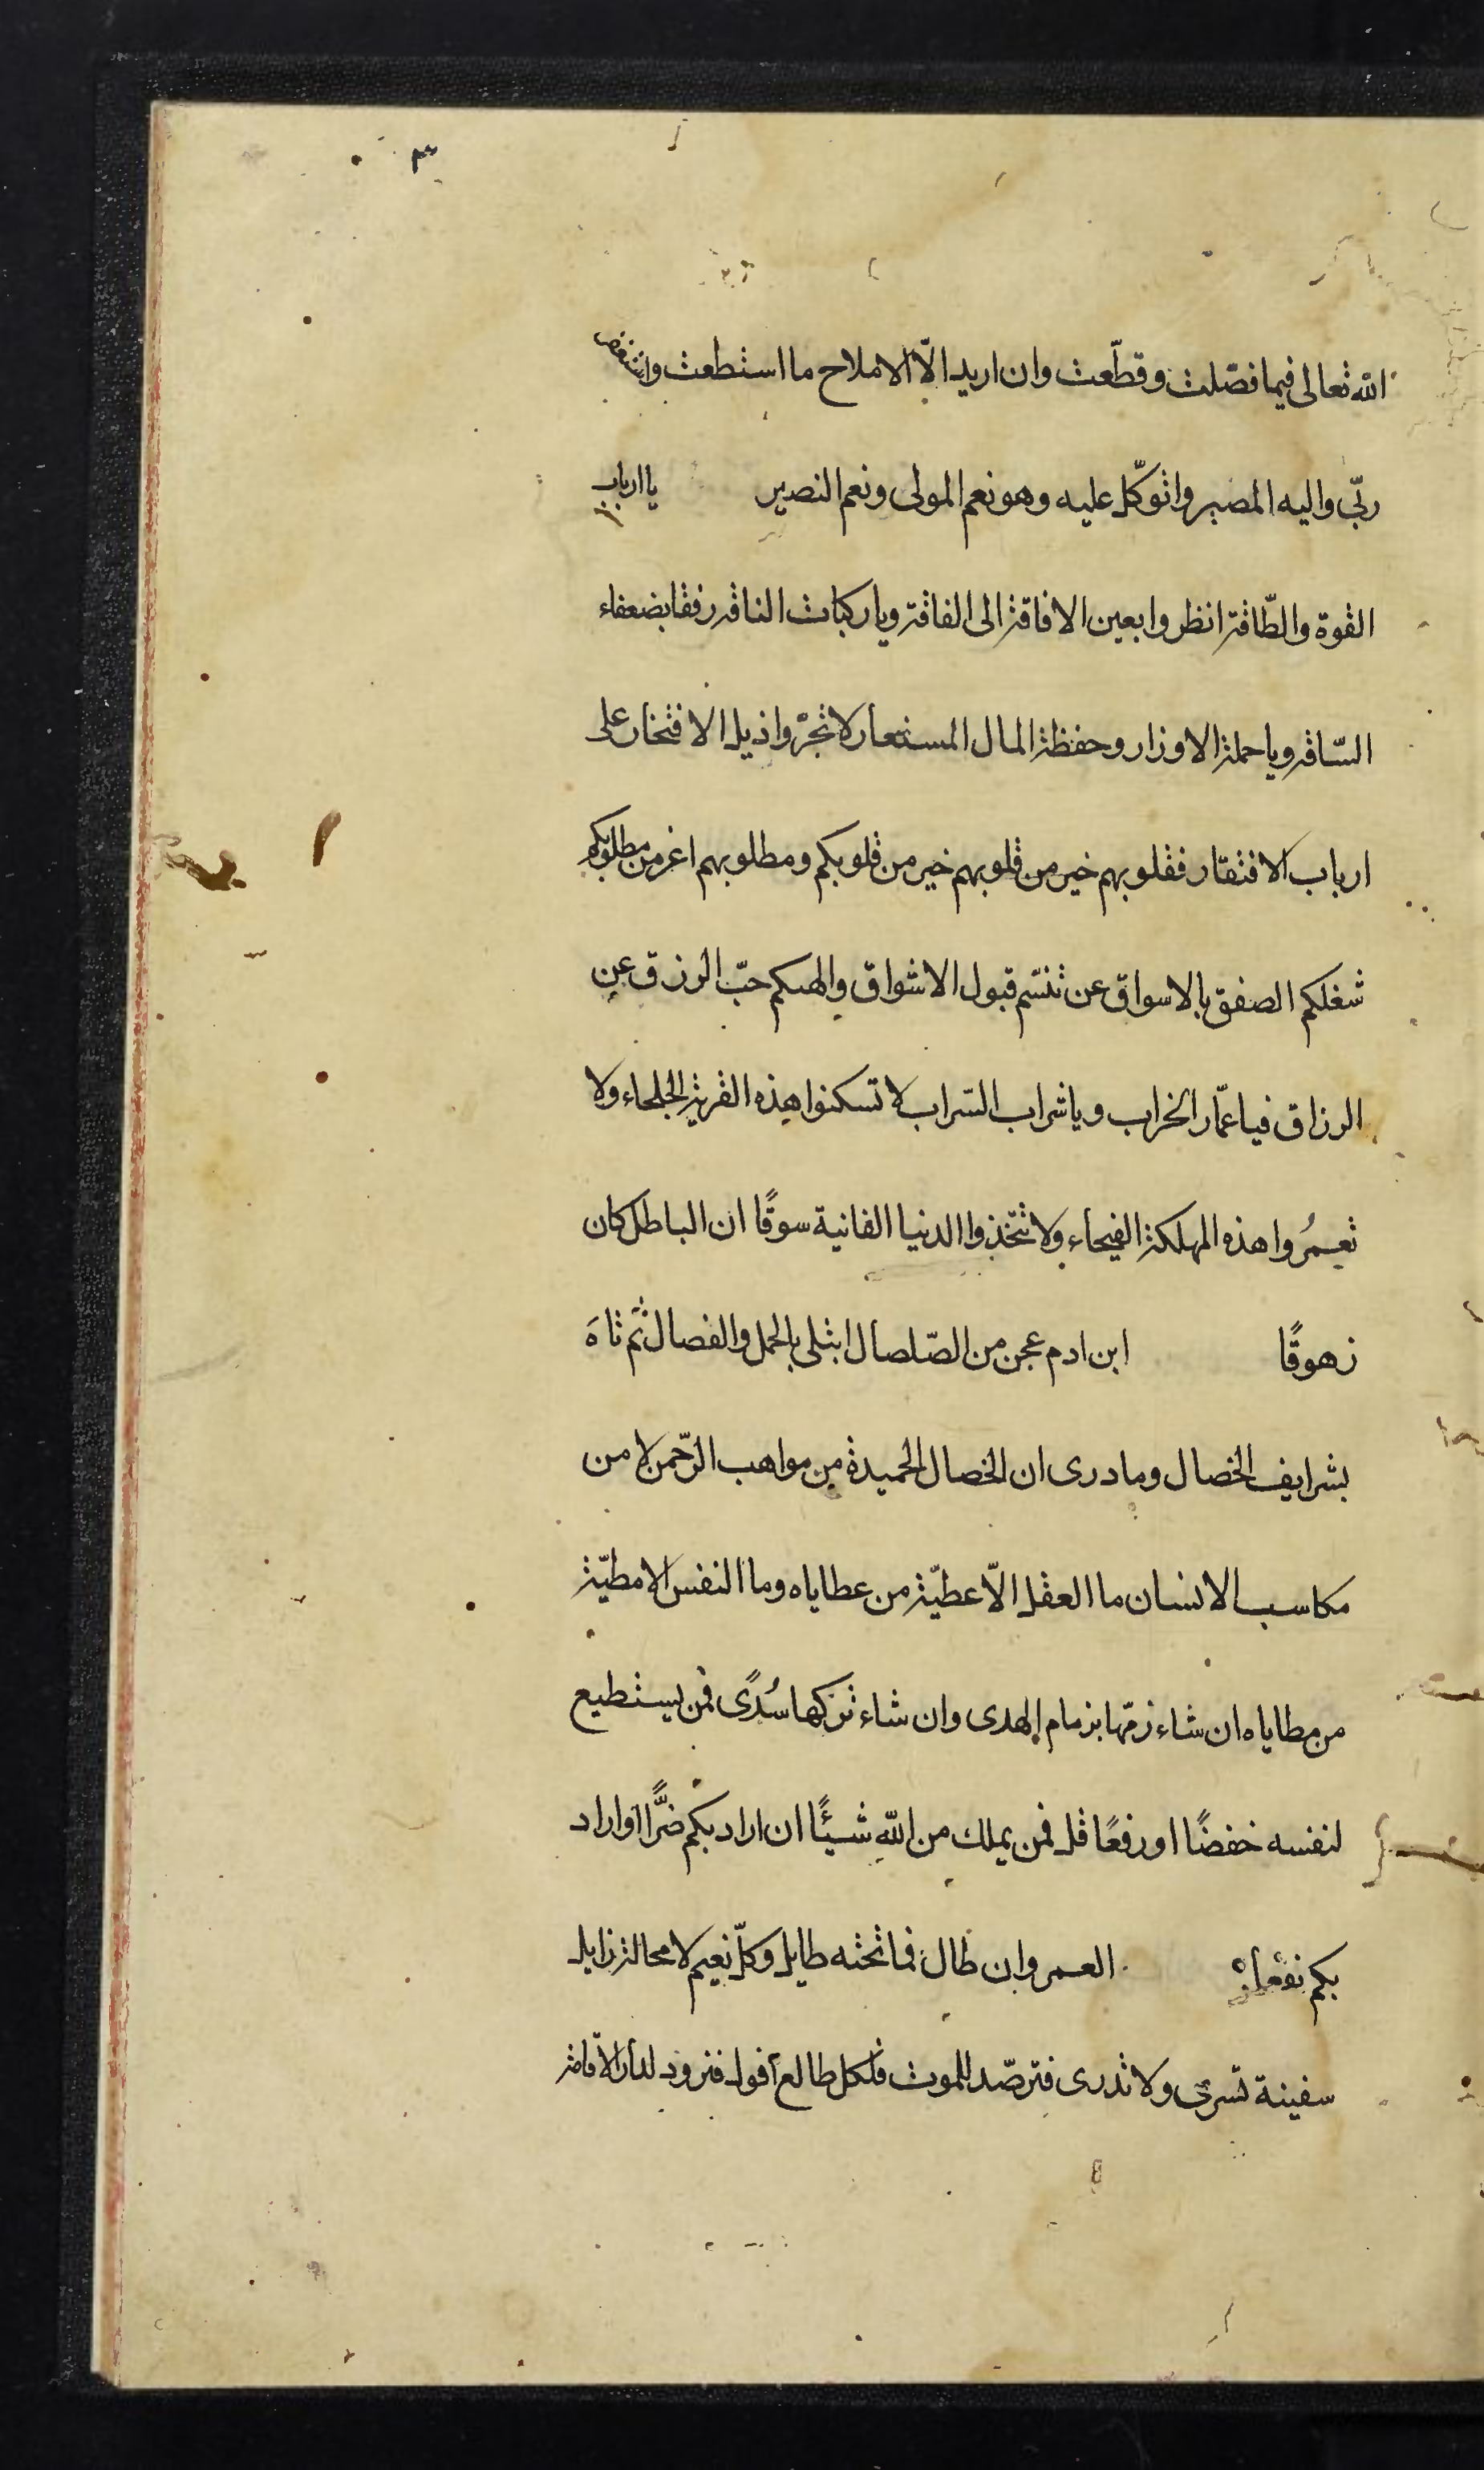 ٣
الله تعالى فيما فصّلت وقطّعت وان اريد الّا الاملاح ما استطعت
ربّي واليه المصير واتوكّل عليه وهو نعم المولى ونعم النصير يا ارباب
القوة والطّاقة انظروا بعين الافاقة الى الفاقة ويا ركبات الناقة رفقا بضعفاء
السّاقة ويا حملة الاوزار وحفظة المال المستعار لا تجرّوا ذيل الافتخار على
ارباب الافتقار فقلوبهم خير من قلوبهم خير من قلوبكم ومطلوبهم اغر من مطلوبكم
شغلكم الصفق بالاسواق عن تنسّم قبول الاشواق والهىكم حبّ الرزق عن
الرزاق فيا عمّار الخراب ويا شراب السّراب لا تسكنوا هذه القرية الجلحاء ولا
تعمرُوا هذه المهلكة الفيحاء ولا تتّخذوا الدنيا الفانية سوقًا ان الباطل كان
زهوقًا ابن ادم عجن من الصّلصال ابتلى بالحمل والفصال ثمّ تاهَ
بشرايف الخصال وما درى ان الخصال الحميدة من مواهب الرّحمن لا من
مكاسب الانسان ما العقل الّا عطيّة من عطاياه وما النفس الا مطيّة
من مطاياه ان شاء زمّها بزمام الهدى وان شاء تركها سُدًى فمن يستطيع
لنفسه خفضًا او رفعًا قل فمن يملك من الله شيئًا ان اراد بكم ضرًّا او اراد
بكم نفعا العمر وان طال فما تحته طايل وكلّ نعيم لا محالة زايل
سفينة تسري ولا تدرى فترصّد للموت فلكل طالع أفول فتزود لدار الاقامة